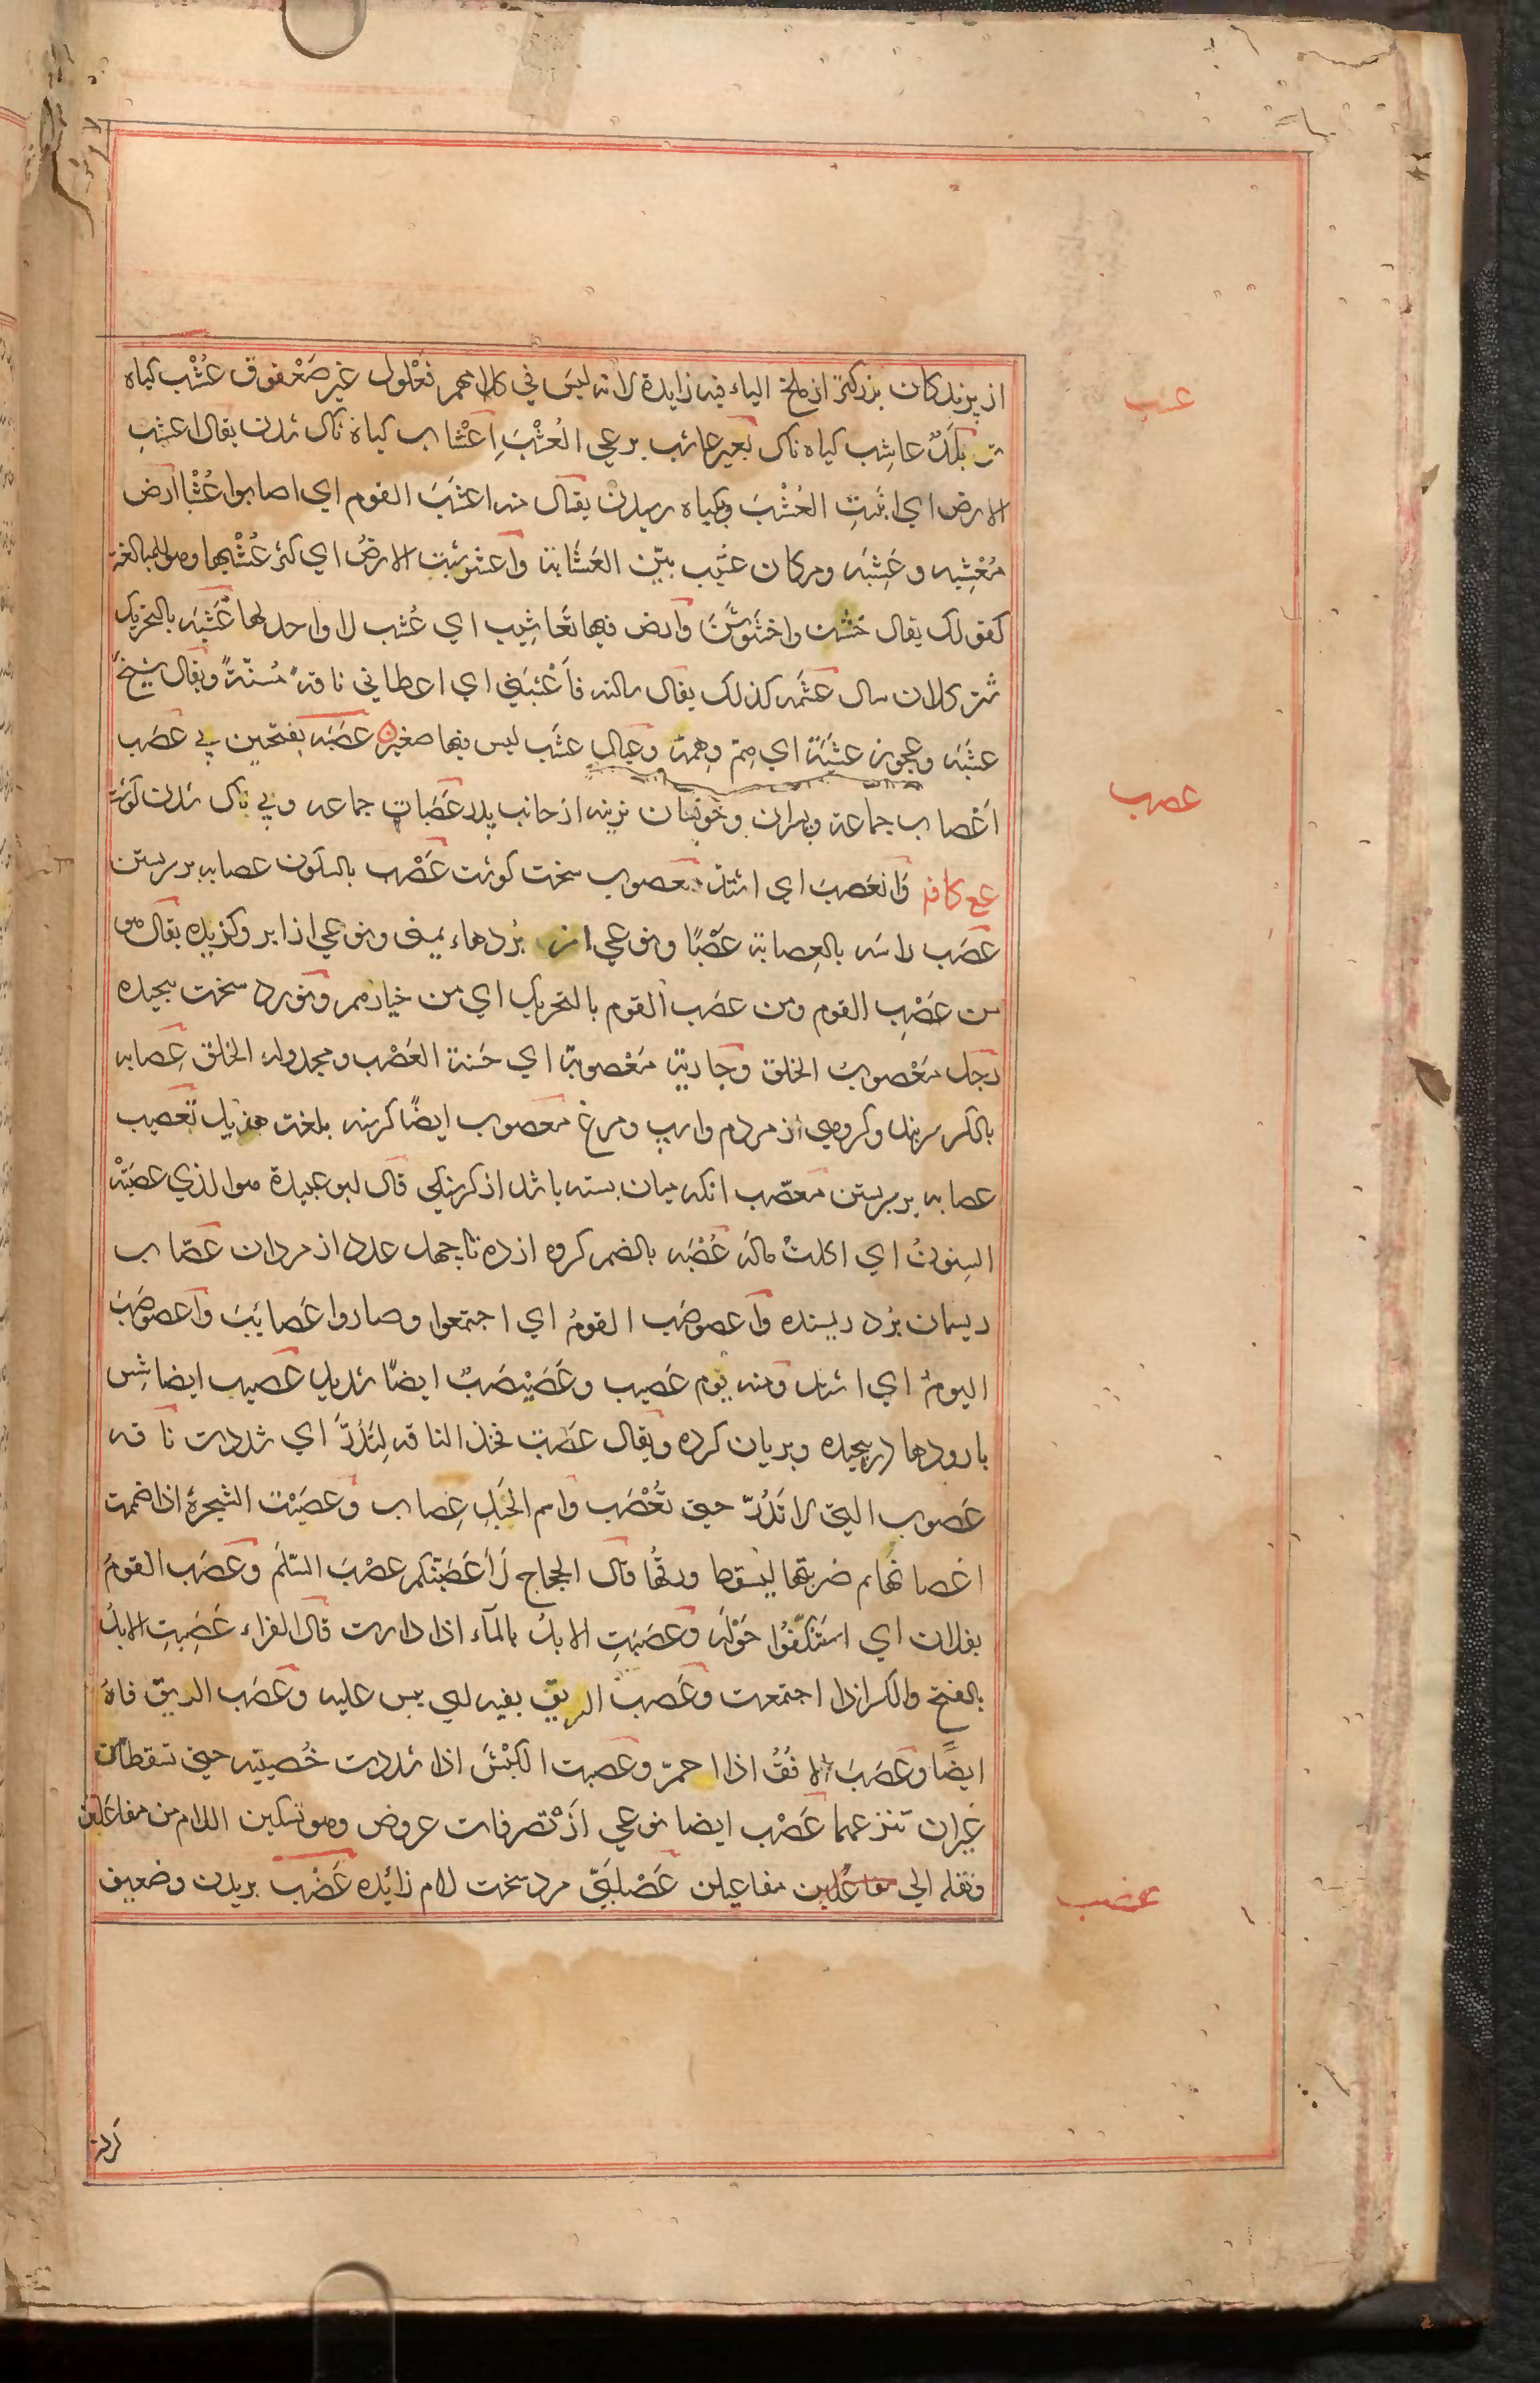 از پرندکان بزرکتر از ملخ الیاء فیه زایدة لانه لیس فی کلامهم فعلول غیر صعفوق عُشْب کیاه
تر بَلَدٌ عاشِب کیاه ناک بعیر عاشب برعی العُشْبَ اِعْشاب کیاه ناک شدن یقال اعشبت
الارض ای انبتتِ العُشْبَ وبکیاه رسیدن یقال منه اعشَبَ القوم ای اصابوا عُشْبا ارض
مُعْشِبه وعَشِبَه ومکان عَشیب بیّن العَشابة واعشوشبت الارضُ ای کثر عُشْبُها وهو للمبالغه
کقولک یقال خشُن واخشَوشَنَ وارض فیها تَعاشِیب ای عُشب لا واحد لها عَشَبَه بالتحریک
شتر کلان سال عَشَمه کذلک یقال سالته فاَعْشبَنی ای اعطانی ناقةً مُسنّةً ویقال شیخٌ
عشَبَه وعجوز عشَبَة ای هِمّ وهِمّة وعیال عشَب لیس فیها صغیر عَصَبَه بفتحین پی عصَب
اَعْصاب جماعة وپسران وخویشان نرینه از جانب پدر عَصَبات جماعه وپی ناک شدن کوشت
عع کافه وانعَصبَ ای اشتدّ معصوب سخت کوشت عَصْب بالسکون عصابه بر سر بستن
عصَب راسَه بالعِصابة عَصْبًا ونوعی از بُردهاء یمنی ونوعی از ابر وکزیده یقال هو
من عَصْبِ القوم ومن عصَب القوم بالتحریک ای من خیارهم ونَوَرد سخت پیچیده
رجل مَعْصوب الخلق وجاریة مَعْصوبة ای حَسَنة العَصْب ومجدولة الخلق عِصابه
بالکسر سربند وکروهی از مردم واسپ ومرغ معصوب ایضًا کرسنه بلغت هذیل تَعصیب
عصابه بر سر بستن معصّب انکه میان بسته باشد از کرسنکی قال ابو عبیدة هو الذی عصَبَتْه
السِنونُ ای اکلتْ مالَه عُصْبَه بالضم کروه از ده تا چهل عدد از مردان عصّاب
ریسمان بُرد ریسنده واعصوصَب القومُ ای اجتمعوا وصاروا عَصایبَ واعصوصَبَ
الیومُ ای اشتد ومنه یَوم عَصیب وعَصَبْصَبٌ ایضًا شدید عَصیب ایضا شش
با رودها در پیچیده وبریان کرده ویقال عصَبت فخذ الناقه لِتَدُرّ ای شددت ناقه
عَصوب التی لا تَدُرّ حتی تُعْصَب واسم الحَبلِ عِصاب وعصَبْت الشجرةَ اذا ضممت
اغصانها ثم ضربتها لیسقط ورقُها قال الحجاج لَاَعْصَبَنّکم عصْبَ السَلَم وعصَب القومُ
بفلان ای استَکَفُّوا حَوْلَه وعصَبَتِ الابلُ بالمآء اذا دارت قال الفراء عَصَبتِ الابلُ
بالفتح والکسر اذا اجتمعت وعَصب الریق بفیه ای یبس علیه وعصَب الریق فاهُ
ایضًا وعصَبَ الاُفُقُ اذا احمرّ وعصبت الکَبْشَ اذا شددت خُصییه حتی تسقطا من
غیر ان تنزعهما عَصْب ایضا نوعی از تصرفات عروض وهو تسکین اللام من مفاعلتن
ونقله الی مفاعیلن عَصْلَبیّ مرد سخت لام زائده عَضْب بریدن وضعیف
عشب
عصب
عضب